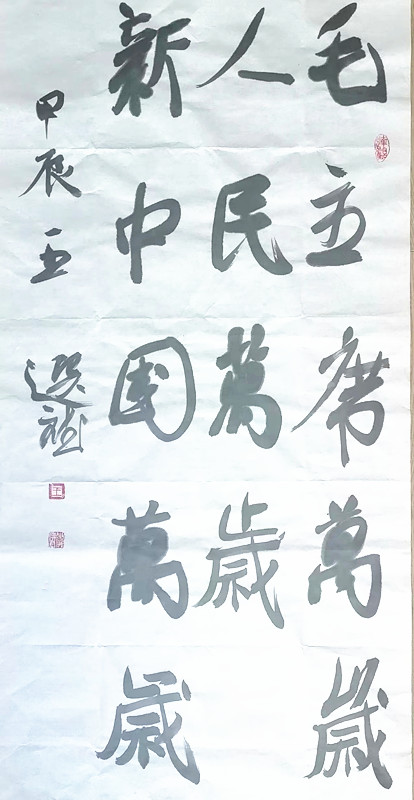 毛主席萬歲
人民萬歲
新中國萬歲
甲辰 王